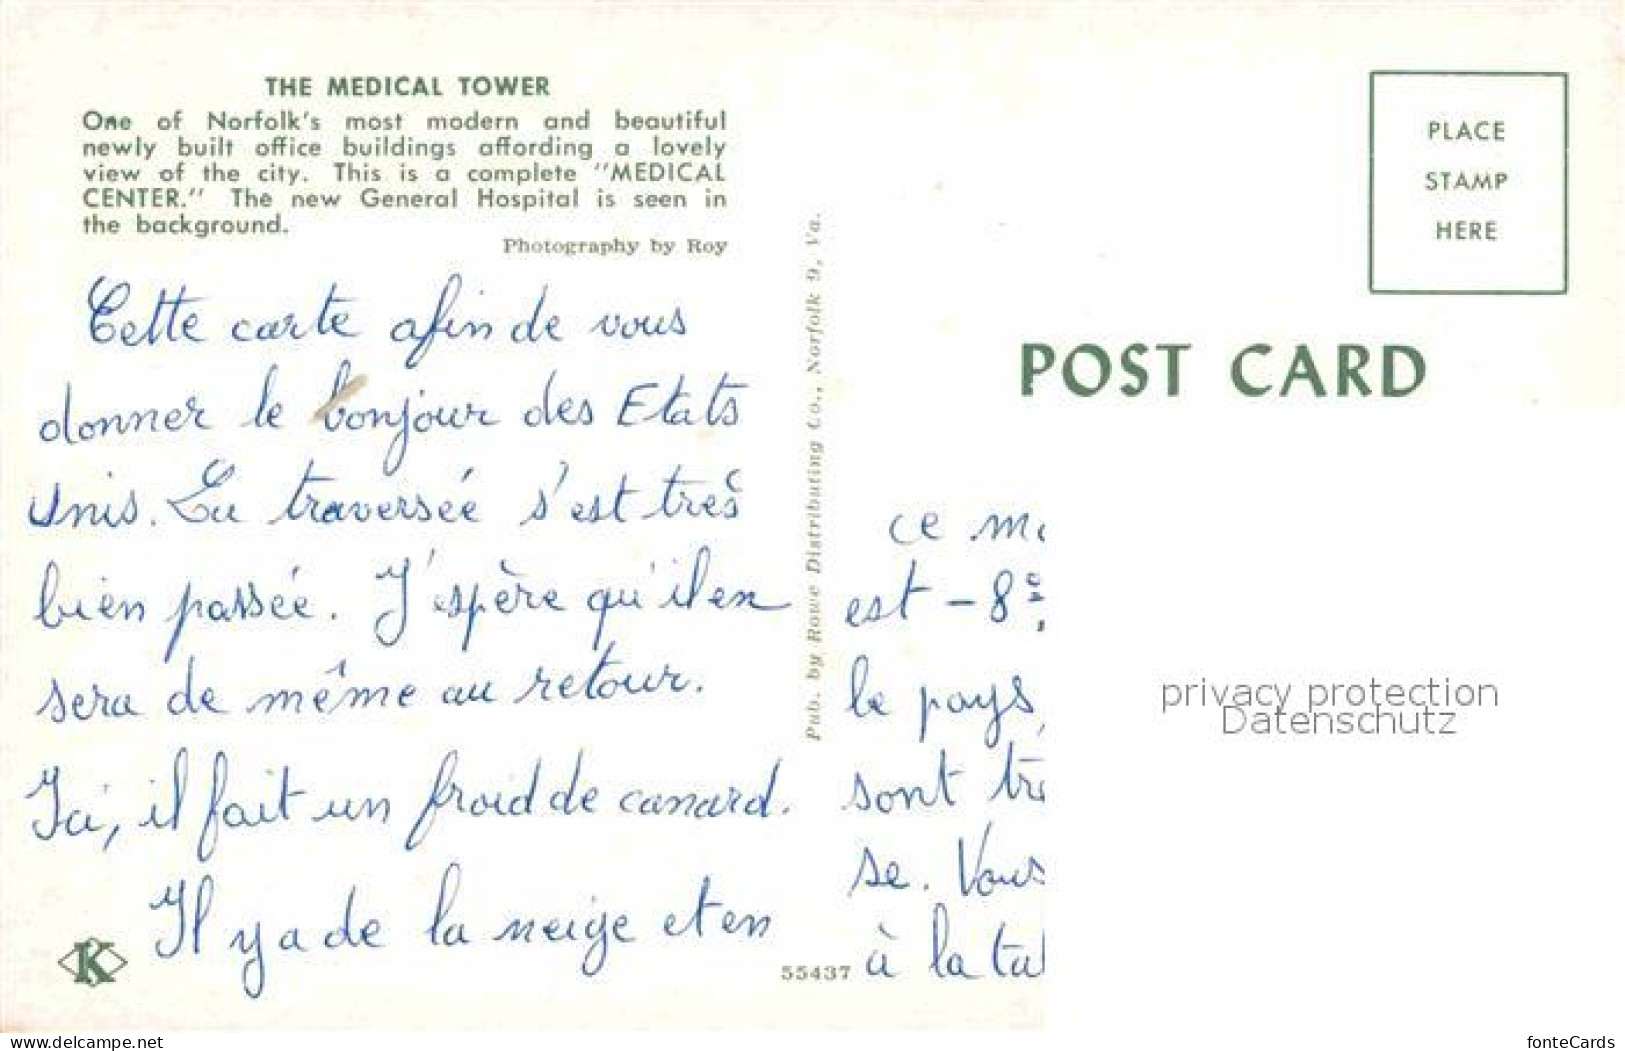 THE MEDICAL TOWER
One of Norfolk's most modern and beautiful
newly built office buildings affording a lovely
view of the city. This is a complete "MEDICAL
CENTER." The new General Hospital is seen in
the background.
Photography by Roy
Cette carte afin de vous
donner le bonjour des Etats
Unis. La traversée s'est très
bien passée. J'espère qu'il en
sera de même au retour.
Ici, il fait un froid de canard.
Il y a de la neige et en
K
55437
Pub. by Rowe Distributing Co., Norfolk 9, Va.
PLACE
STAMP
HERE
POST CARD
ce
est -8°
le pays,
sont
se. Vous
à la
privacy protection
Datenschutz
www.delcampe.net
fonteCards